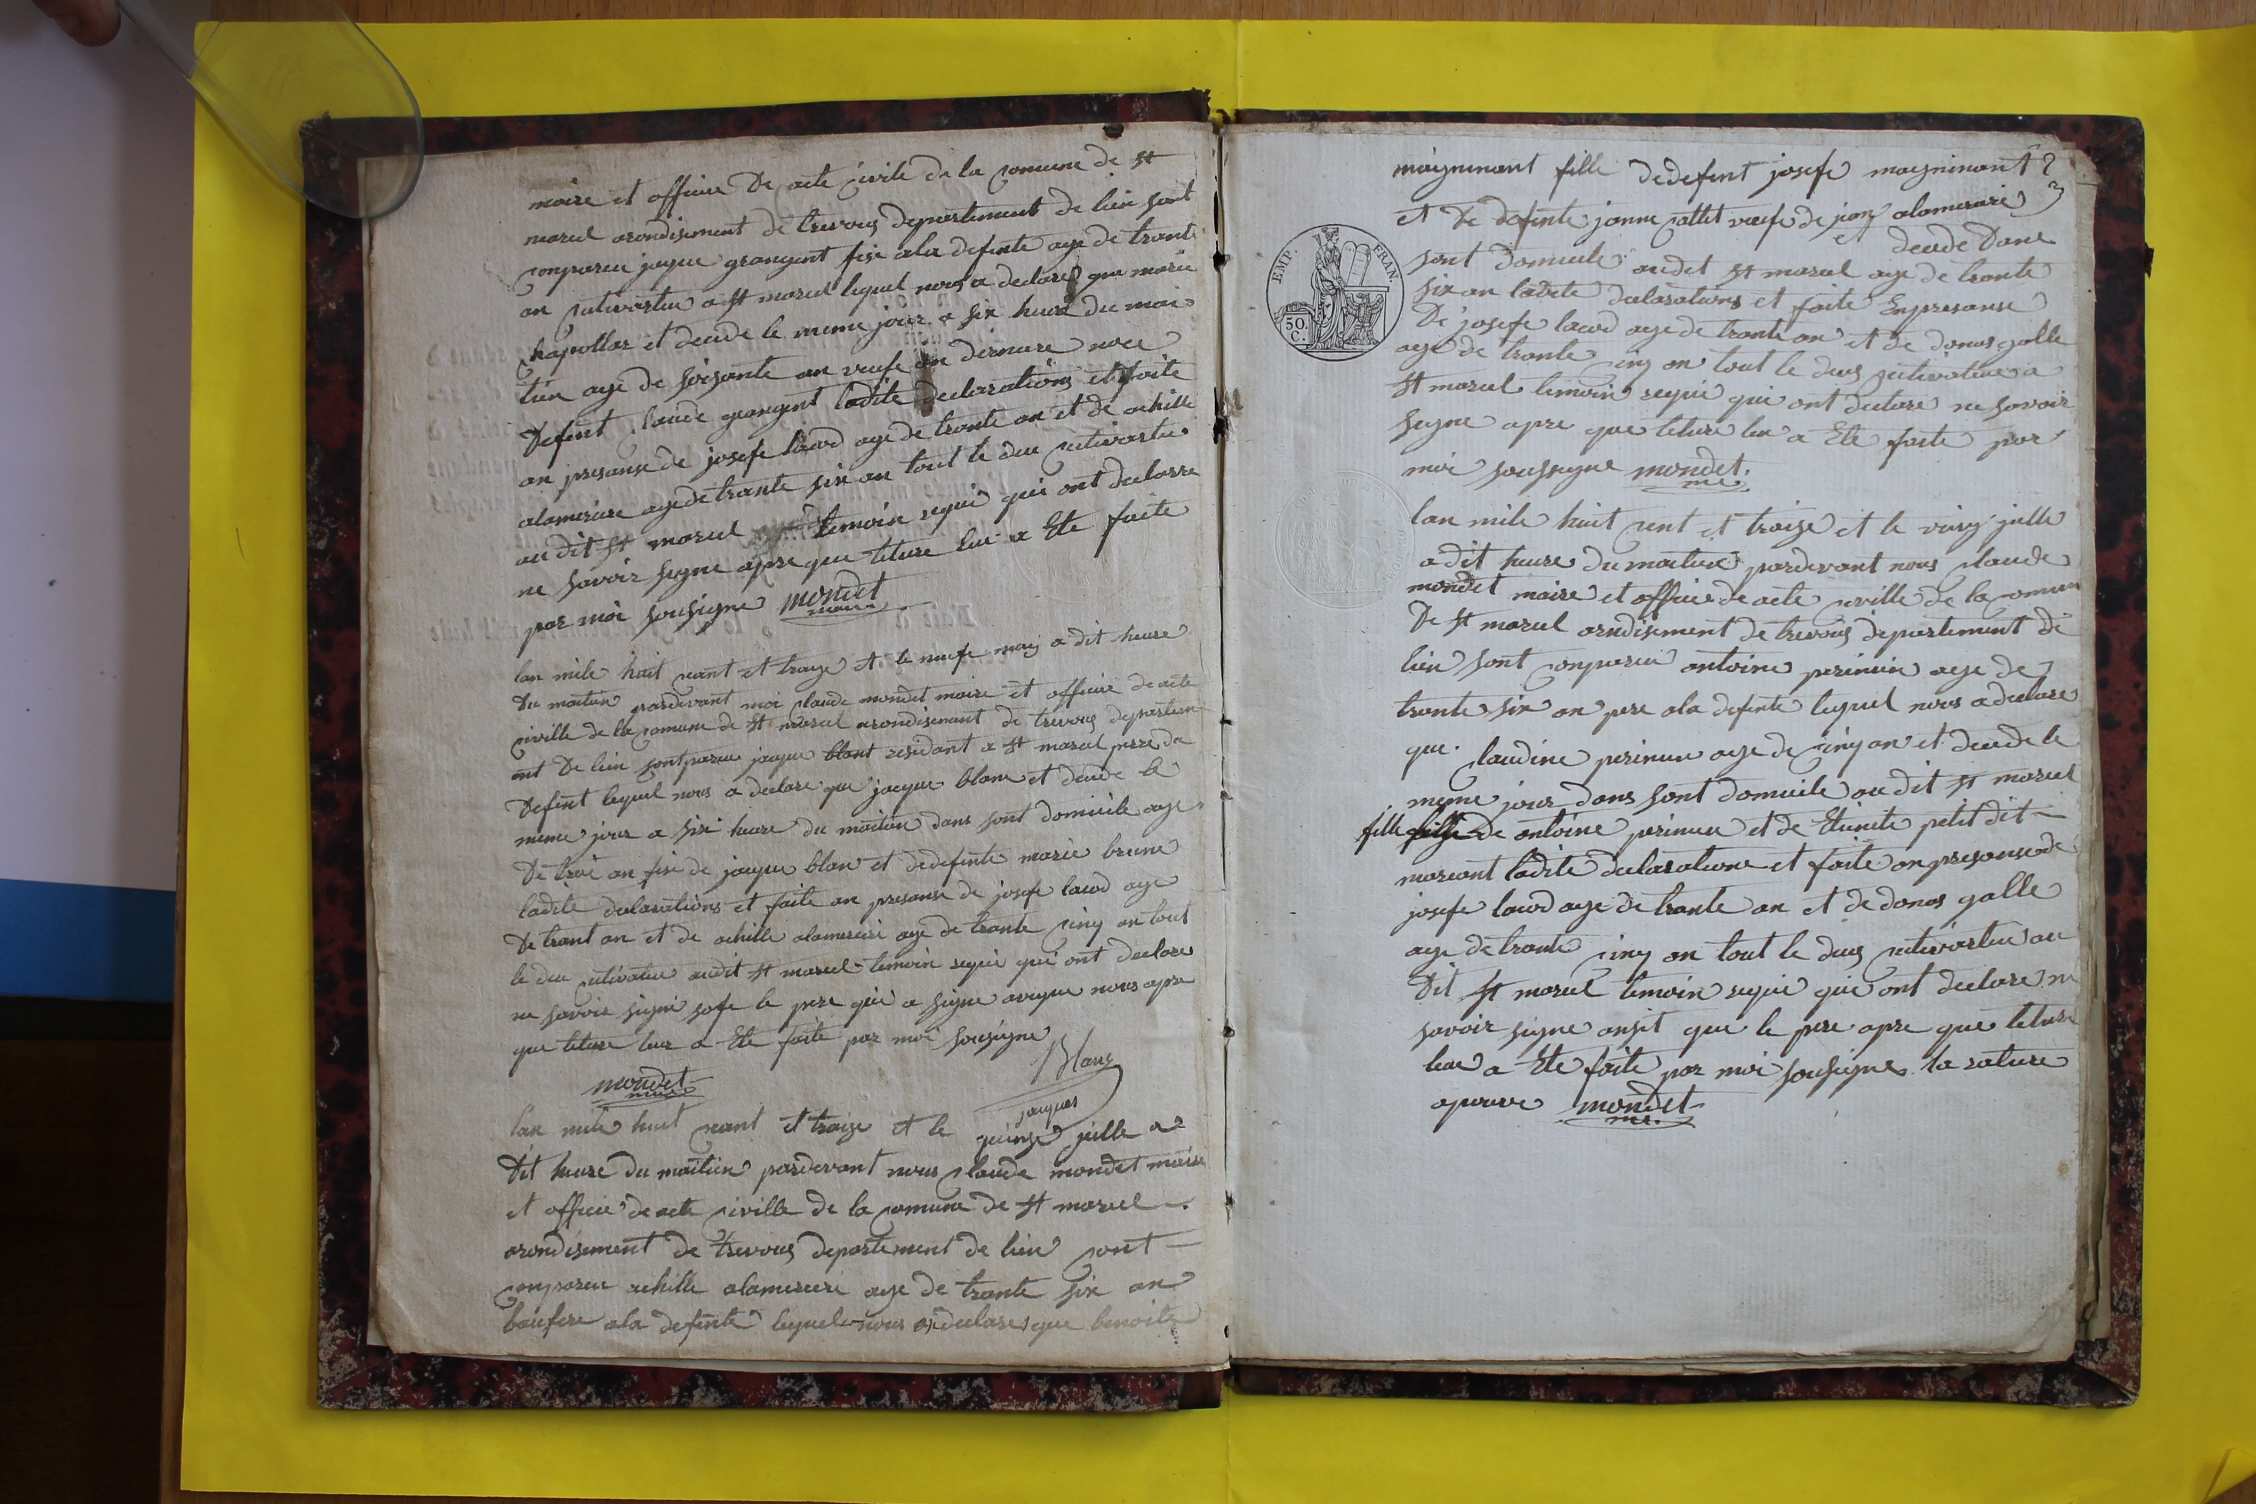 maire et officier De acte civile de la comune de st
marcel arondisement de trevoug departement de lein sont
conparu jaque grangent fise ala defente age de trante
an cutivarteu a st marcel lequel nous a declare que marie
chapollar et decede le meme jour a six heure du mai
tin age de soisante an veufe an derniere noce
Defent claude grangent ladite declarations et faite
an presanse de josefe lacod age de trante an et de achille
alamersire age de trante six an tout le deu cutivarteu
au dit st marcel temoin requi qui ont declarre
ne savoir signe apre que leture leu a Ete faite
par moi sousigne mondet
maire
lan mile huit cent et traize et le neufe may a dit heure
Du maitin pardevant moi claude mondet maire et officier de acte
civille de la comune de st marcel arondisemant de trevoug departem
ent De lein sont paru jaque blant residant a st marcel perre du
Defent lequel nous a declare que jacque blanc et decede le
meme jour a sixi heure du maitin dans sont domicile age
De troi an fise de jaque blan et dedefente marie brune
ladite declarations et faite an presanse de josefe lacod age
De trant an et de achille alamersire age de trante cinq an tout
le deu cutivateu audit st marcel temoin requi qui ont declare
ne savoir signe sofe le pere qui a signe aveque nous apre
que leture leur a Ete faite par moi sousigne
Blanc
mondet
maire
jacques
lan mile huit cent et traize et le quinze jülle a
Dit heure du maitin pardevant nous claude mondet maire
et officier de acte civille de la comune de st marcel
arondisement de trevoug departement de lein sont
conparu achille alamersire age de trante six an
baufere ala defente lequel nous a declare que benoite
maigninant fille dedefent josefe maigninant
et de defente janne collet veufe de jan alamersire
et decede Dans
sont domicile audit st marcel age de trante
six an ladite declarations et faite En presanse
De josefe lacod age de trante an et de donas galle
age de trante cinq an tout le deus cutivateu a
st marcel temoin requi qui ont declare ne savoir
signe apre que leture leu a Ete faite par
moi soussigne mondet.
me
EMP. FRAN.
50.
C.
lan mile huit cent et traize et le vinq jülle
a dit heure du maitin pardevant nous claude
mondet maire et officier de acte civille de la comun
De st marcel arondisement de trevoug departement de
lein sont conparu antoine perinin age de
trante six an pere ala defente lequel nous a declare
que claudine perinin age de cinq an et decede le
meme jour dans sont domicile au dit st marcel
fille fille de antoine perinin et de Etienete petit dit
moreant ladite declarations et faite an presanse de
josefe lacod age de trante an et de donas galle
age de trante cinq an tout le deus cutivarteu au
Dit st marcel temoin requi qui ont declare ne
savoir signe ansit que le pere apre que leture
leur a Ete faite par moi sousigne la rature
aprouve mondet
me.